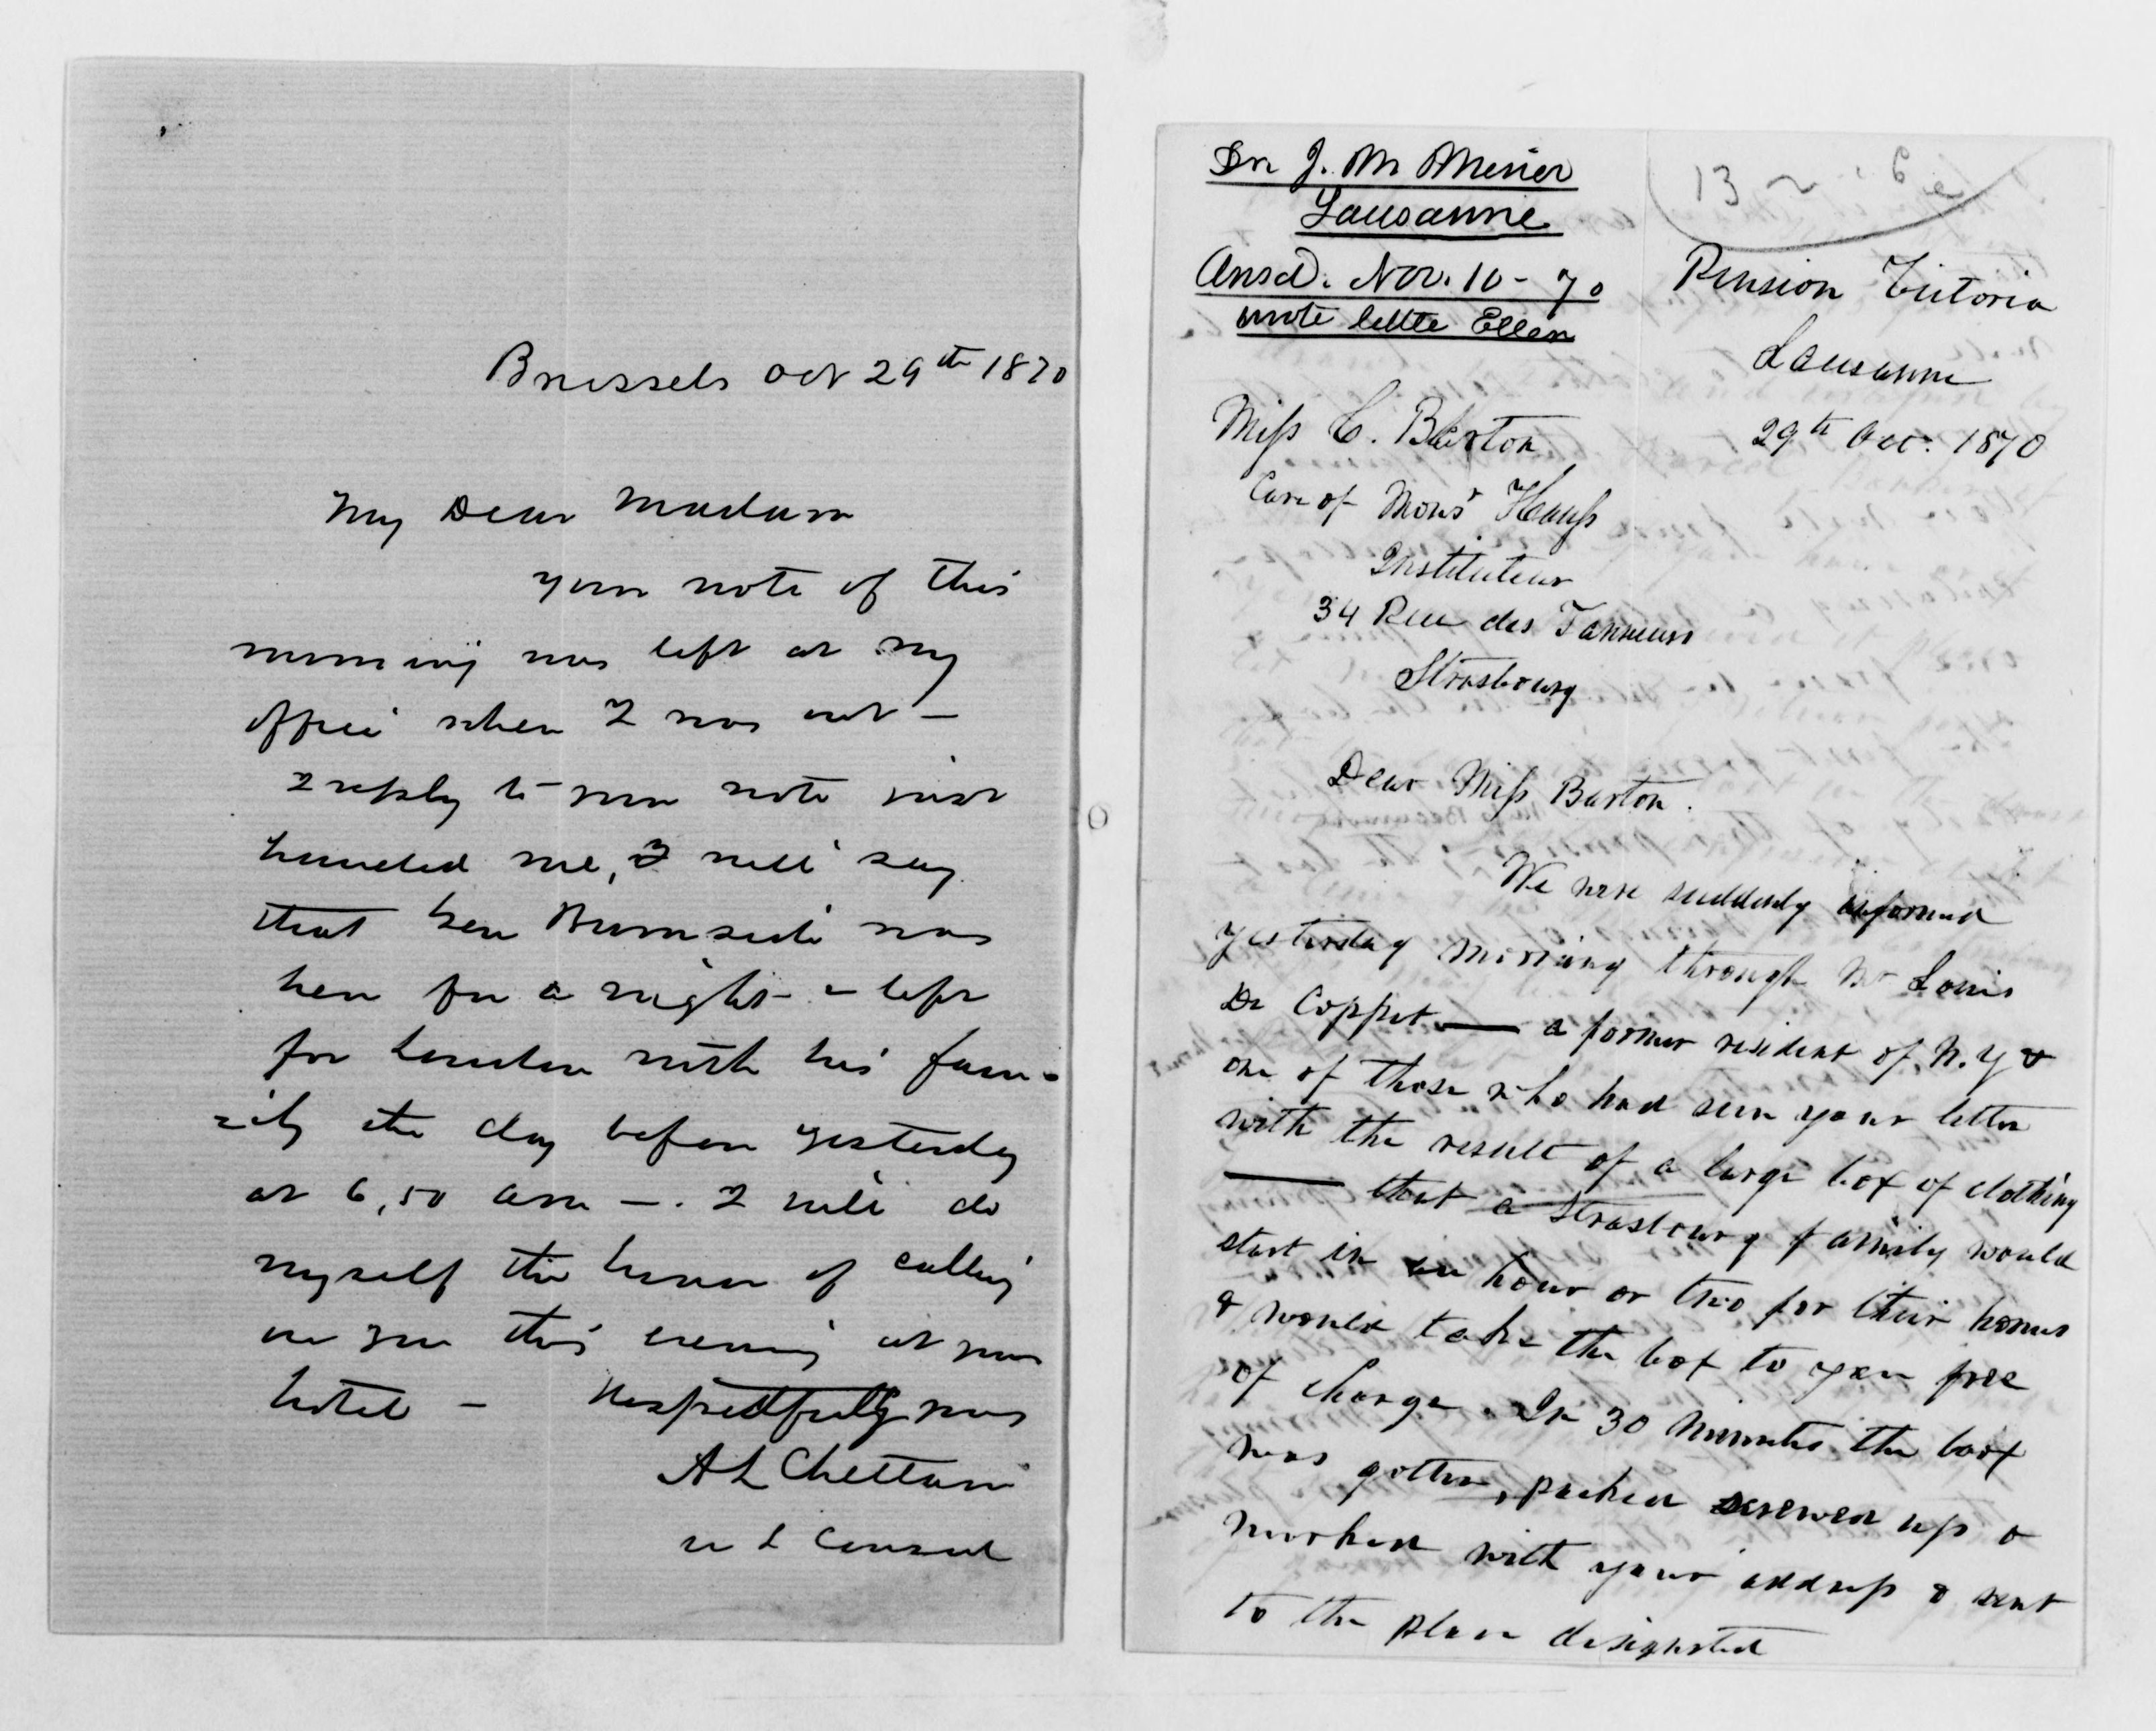 Brussels Oct 29th 1870
My Dear Madam
your note of this
morning was left at my
office when I was out —
I reply to your note just
handed me, I will say
that Gen Burnside was
here for a night & left
for London with his fam-
-ily the day before yesterday
at 6,50 am —. I will do
myself the honor of calling
on you this evening at your
hotel — Respectfully yours
A L Chetlain
U S Consul
Dr J. M Mesier
Lausanne
Ansd. Nov. 10 - 70
wrote letter Ellen
13
Pension Victoria
Lausanne
29th Oct. 1870
Miss C. Barton
Care of Monsr Hauss
Instituteur
34 Rue des Tanneurs
Strasbourg
Dear Miss Barton.
We were suddenly informed
yesterday morning through Mr Louis
De Coppet — a former resident of N.Y &
one of those who had seen your letter
with the result of a large box of clothing
— that a Strasbourg family would
start in an hour or two for their homes
& would take the box to you free
of charge. In 30 minutes the box
was gotten, packed screwed up &
marked with your address & sent
to the place designated